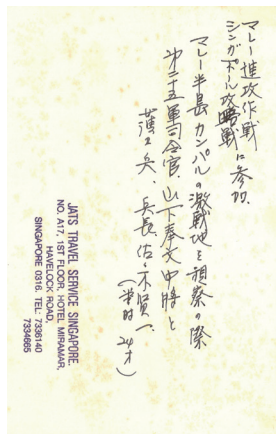 マレー進攻作戦
シンガポール攻略戦に参加.
マレー半島カンパルの激戦地を視察の際
第二十五軍司令官.山下奉文中将と
護衛兵、兵長、佐々木賢一.
(当時24才)
JATS TRAVEL SERVICE SINGAPORE,
NO. A17, 1ST FLOOR, HOTEL MIRAMAR,
HAVELOCK ROAD,
SINGAPORE 0316. TEL: 7336140
7334665